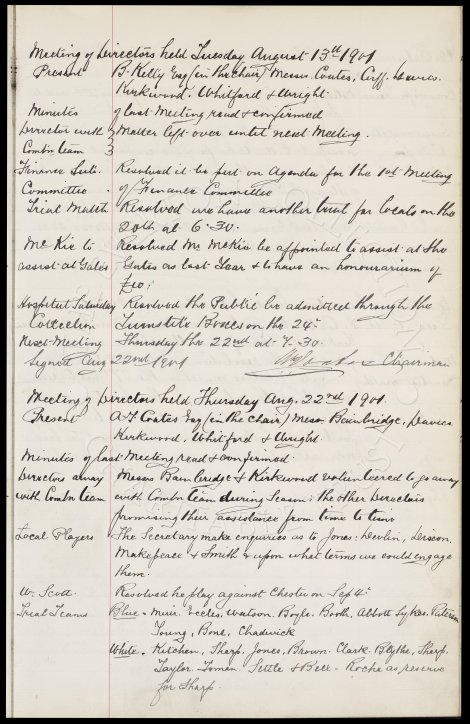 Meeting of Directors held Tuesday August 13th 1901
Present B. Kelly Esq (in the chair) Messrs. Coates, Cuff, Davies.
Kirkwood. Whitford & Wright.
Minutes of last Meeting read & confirmed
Director with Matter left over until next Meeting.
Combn team
Finance Sub. Resolved it be put on Agenda for the 1st Meeting
Committee. of Finance Committee
Trial Match Resolved we have another trial for locals on the
20th at 6.30.
McKie to Resolved Mr McKie be appointed to assist at the
assist at Gates Gates as last Year & to have an honourarium of
£10.
Hospital Saturday Resolved the Public be admitted through the
Collection Turnstile Boxes on the 24th
Next Meeting Thursday the 22nd at 7.30.
Signed Aug 22nd 1901 Chairman
Meeting of Directors held Thursday Aug. 22nd 1901.
Present A. T. Coates Esq (in the chair) Messrs Bainbridge, Davies
Kirkwood, Whitford & Wright.
Minutes of last Meeting read & confirmed.
Directors away Messrs Bainbridge & Kirkwood volunteered to go away
with Combn team with Combn team during Season: the other Directors
promising their assistance from time to time
Local Players The Secretary make enquiries as to Jones. Devlin,
Makepeace & Smith & upon what terms we could engage
them.
W. Scott. Resolved he play against Chester on Sep 4th
Trial Teams Blue. Muir. Eccles. Watson. Boyle. Booth, Abbott Sykes. Paterson
Young, Bone, Chadwick
White. Kitchen, Sharp, Jones, Brown. Clark. Blythe, Sharp.
Taylor. Toman. Settle & Bell. Roche as reserve
for Sharp.